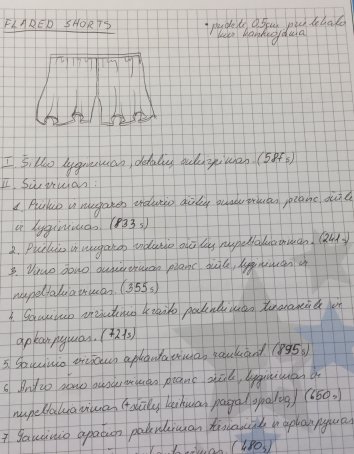 FLARED SHORTS
• pridėti 0,5cm prie
bus
I Šilko lyginimas, detalių sukirpimas (587s)
II Siuvimas:
1. Priekio ir nugaros vidurio siūlių susiuvimas pranc. siūle
ir lyginimas. (833s)
2. Priekio ir nugaros vidurio siūlių nupeltakiavimas. (241s)
3. Vieno šono susiuvimas pranc. siūle, lyginimas ir
nupeltakiavimas. (355s)
4. Gaminio viršutinio krašto palenkimas tiesiasiūle ir
apkarpymas. (721s)
5. Gaminio viršaus apkantavimas raukiant (895s)
6. Antro šono susiuvimas pranc. siūle, lyginimas ir
nupeltakiavimas (+ siūlių keitimas pagal spalvą) (650s)
7. Gaminio apačios palenkimas tiesiasiūle ir apkarpymas
(480s)